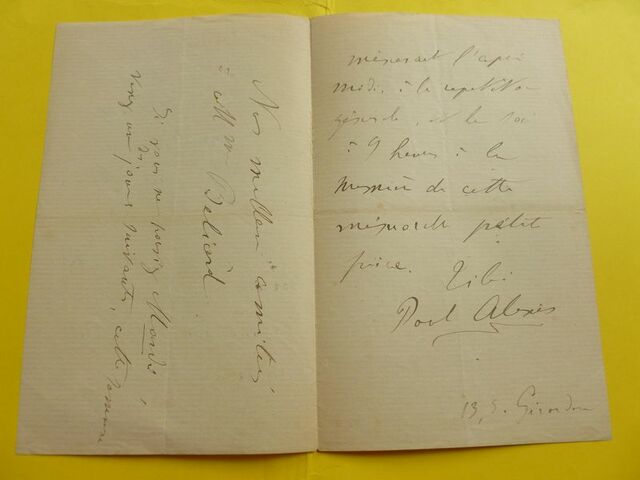 l'après
midi, à la repetition
générale, et le soir
à 9 heures à la
première de cette
petite
pièce.
Paul Alexis
13, r. Girardon
Nos meilleurs amitiés
à Mme Beliard
Si vous ne pouvez Mardi,
venez un jour suivant, cette semaine